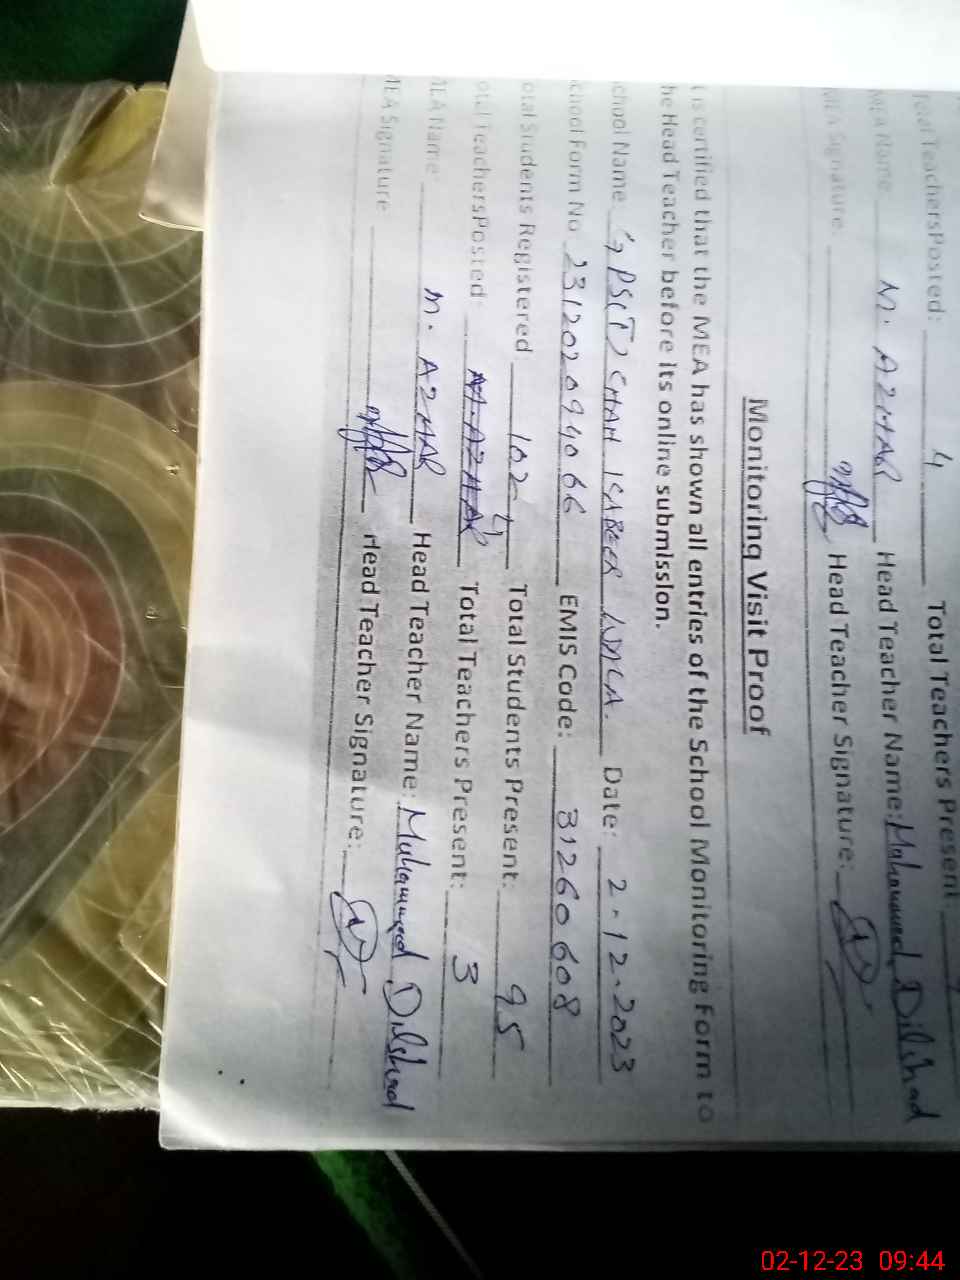 Total TeachersPosted: 4 Total Teachers Present
MEA Name M. AZHAR Head Teacher Name: Mohammad Dilshad
MEA Signature: Head Teacher Signature:
Monitoring Visit Proof
t is certified that the MEA has shown all entries of the School Monitoring Form to
he Head Teacher before its online submission.
chool Name PS(T) CHAH Date: 2-12-2023
chool Form No 23120209 EMIS Code: 31260608
otal Students Registered 102 Total Students Present: 95
otal TeachersPosted: M. AZHAR 4 Total Teachers Present: 3
MEA Name: M. AZHAR Head Teacher Name: Muhammad Dilshad
MEA Signature Head Teacher Signature:
02-12-23 09:44